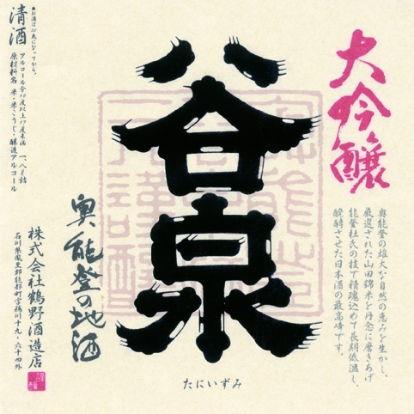 大吟醸
奥能登の雄大な自然の恵みを生かし、
厳選された山田錦米を丹念に磨きあげ
能登杜氏の技で精魂込めて長期低温し、
醗酵させた日本酒の最高峰です。
谷泉
たにいずみ
奥能登の地酒
株式会社鶴野酒造店
石川県鳳至郡能都町字鵜川十九・六十四外
清酒
アルコール分
原材料名 米・米こうじ・醸造アルコール
●お酒は二十歳になってから。